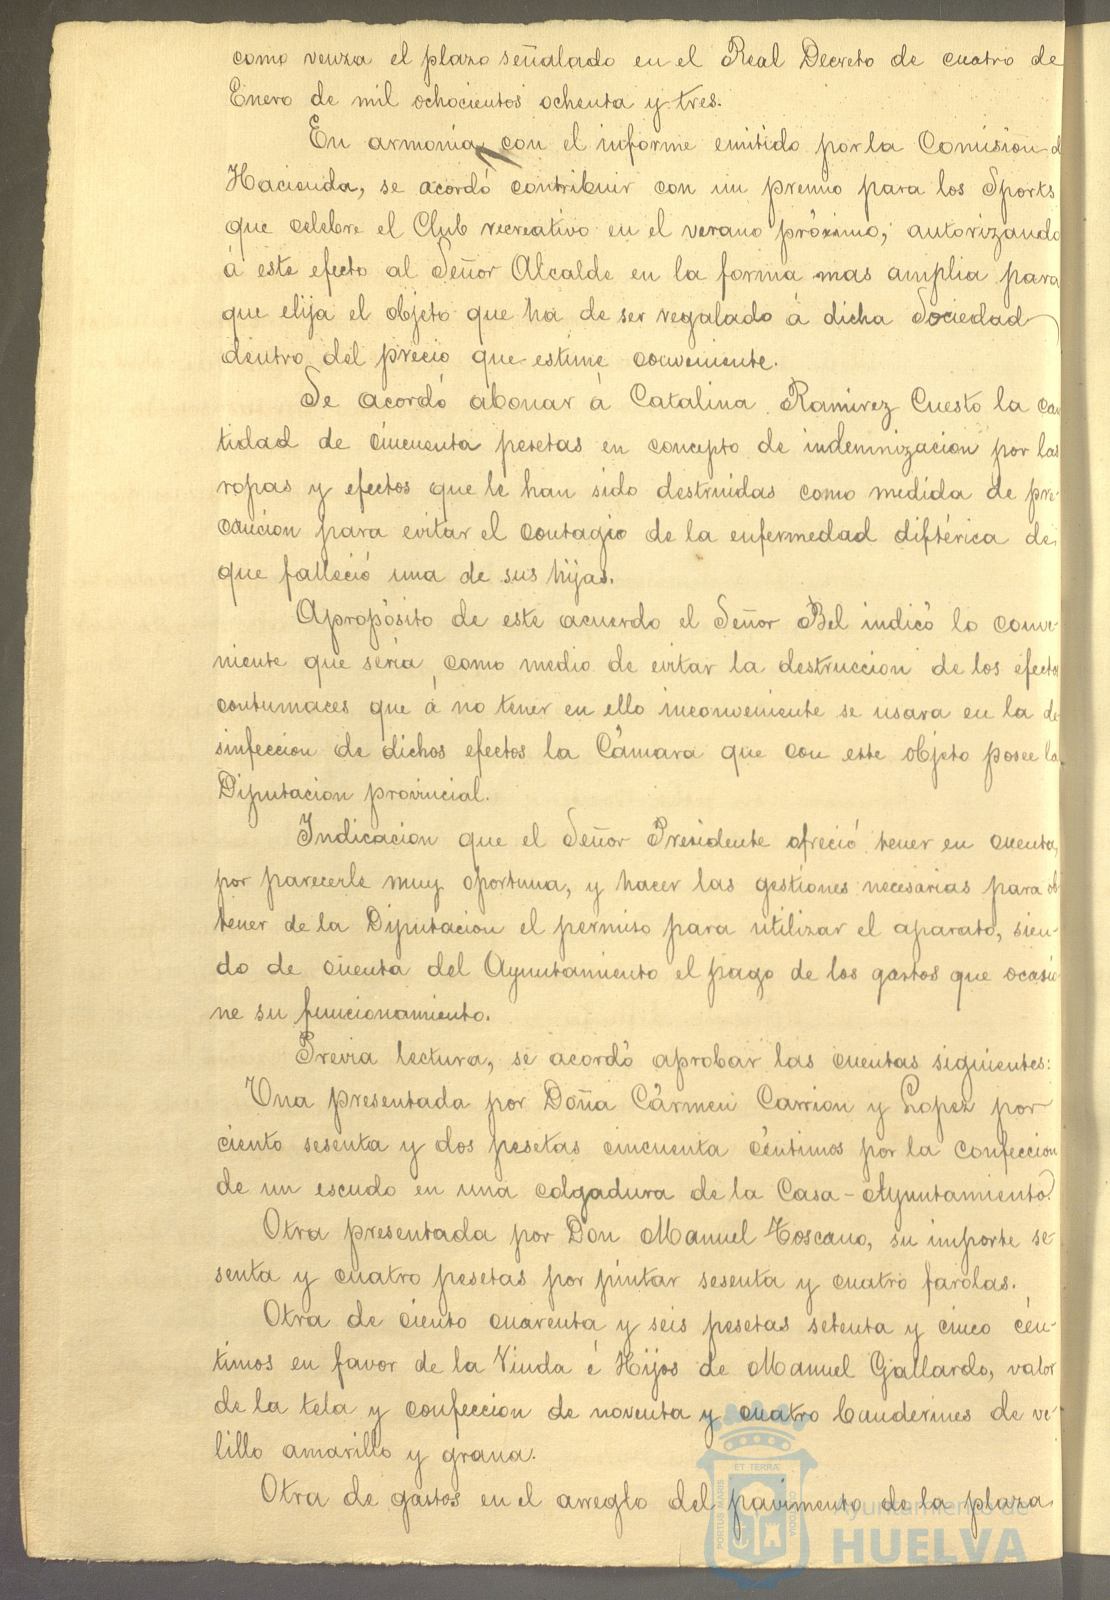 como venza el plazo señalado en el Real Decreto de cuatro de
Enero de mil ochocientos ochenta y tres.
En armonía con el informe emitido por la Comisión d
Hacienda, se acordó contribuir con un premio para los Sports
que celebre el Club recreativo en el verano próximo, autorizando
á este efecto al Señor Alcalde en la forma mas amplia para
que elija el objeto que ha de ser regalado á dicha Sociedad
dentro del precio que estime conveniente.
Se acordó abonar á Catalina Ramirez Cuesto la can
tidad de cincuenta pesetas en concepto de indemnizacion por las
ropas y efectos que le han sido destruidas como medida de pre-
caución para evitar el contagio de la enfermedad diftérica de
que falleció una de sus hijas.
Apropósito de este acuerdo el Señor Bel indicó lo conve-
niente que seria, como medio de evitar la destruccion de los efectos
contumaces que á no tener en ello inconveniente se usara en la de
sinfeccion de dichos efectos la Cámara que con este objeto posee la
Diputacion provincial.
Indicacion que el Señor Presidente ofreció tener en cuenta,
por parecerle muy oportuna, y hacer las gestiones necesarias para ob
tener de la Diputacion el permiso para utilizar el aparato, sien-
do de cuenta del Ayuntamiento el pago de los gastos que ocasio
ne su funcionamiento.
Previa lectura, se acordó aprobar las cuentas siguientes:
Una presentada por Doña Cármen Carrion y Lopez por
ciento sesenta y dos pesetas cincuenta céntimos por la confeccion
de un escudo en una colgadura de la Casa-Ayuntamiento.
Otra presentada por Don Manuel Toscano, su importe se-
senta y cuatro pesetas por pintar sesenta y cuatro farolas.
Otra de ciento cuarenta y seis pesetas setenta y cinco cén-
timos en favor de la Viuda é Hijos de Manuel Gallardo, valor
de la tela y confeccion de noventa y cuatro banderines de ve-
lillo amarillo y grana.
Otra de gastos en el arreglo del pavimento de la plaza
ET TERRA
PORTUS MARIS
CUSTODIA
Ayuntamiento de
HUELVA